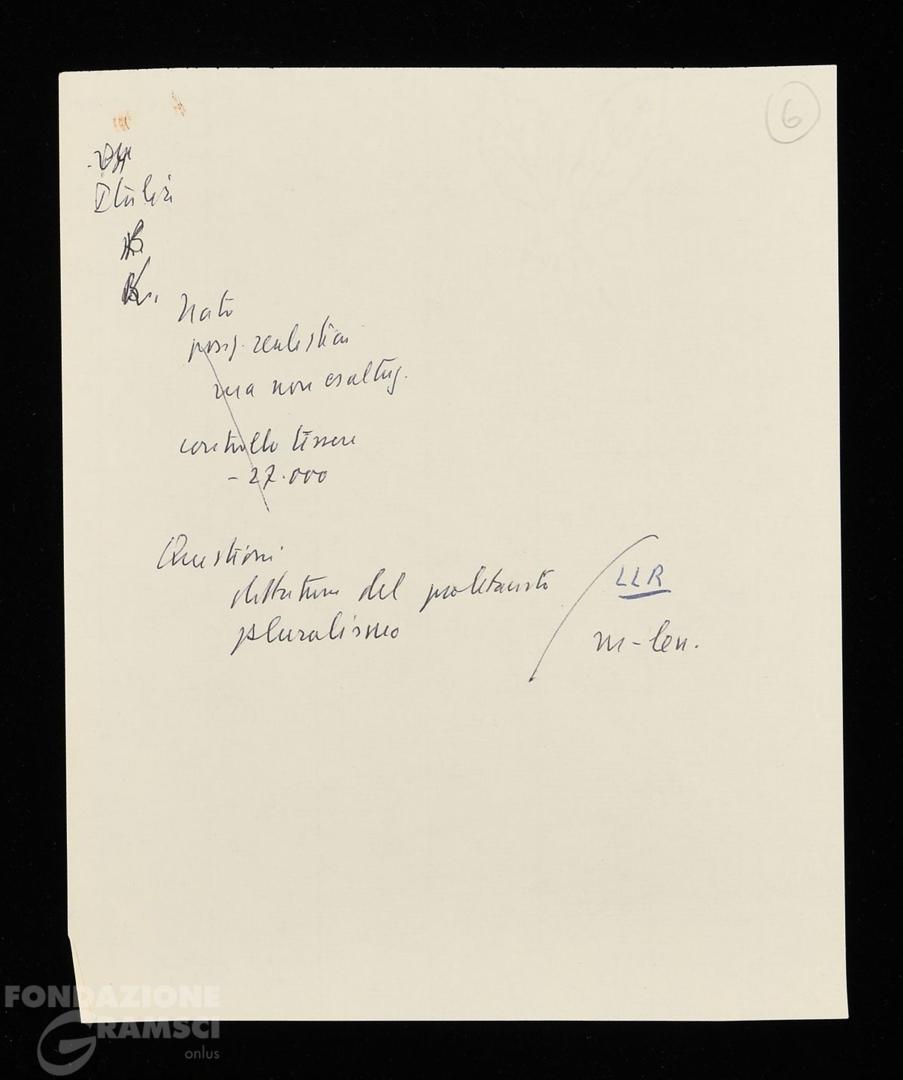 6
Italia
Nato
posiz. realistica
ma non esaltaz.
controllo tessere
- 27.000
Questioni
dittatura del proletariato
pluralismo
LLR
m-len.
FONDAZIONE
GRAMSCI
onlus